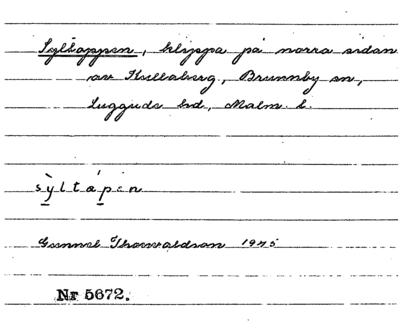 Syltappen, klippa på norra sidan
av Kullaberg, Brunnby sn,
Luggude hd, Malm. l.
sỳltápen
Gunnel Thorvaldson 1975
Nr 5672.